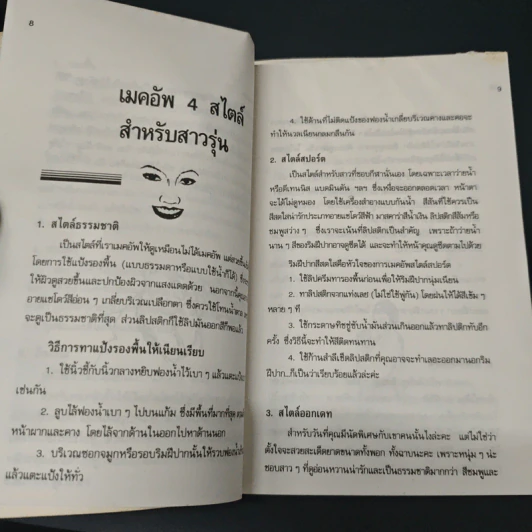 8
เมคอัพ 4 สไตล์
สำหรับสาวรุ่น
1. สไตล์ธรรมชาติ
เป็นสไตล์ที่เราเมคอัพให้ดูเหมือนไม่ได้เมคอัพ
โดยการใช้แป้งรองพื้น (แบบธรรมดาหรือแบบใช้น้ำก็ได้)
ให้ผิวดูสวยขึ้นและปกป้องผิวจากแสงแดดด้วย
อายแชโดว์สีอ่อน ๆ เกลี่ยบริเวณเปลือกตา ซึ่งควรใช้โทนน้ำตาล
จะดูเป็นธรรมชาติที่สุด ส่วนลิปสติกก็ใช้ลิปมันออกสีก็พอแล้ว
วิธีการทาแป้งรองพื้นให้เนียนเรียบ
1. ใช้นิ้วชี้กับนิ้วกลางหยิบฟองน้ำไว้เบา ๆ แล้วแตะแป้ง
เช่นกัน
2. ลูบไล้ฟองน้ำเบา ๆ ไปบนแก้ม ซึ่งมีพื้นที่มากที่สุด
หน้าผากและคาง โดยไล้จากด้านในออกไปหาด้านนอก
3. บริเวณซอกจมูกหรือรอบริมฝีปากนั้นให้รวบฟองน้ำ
แล้วแตะแป้งให้ทั่ว
9
4. ใช้ด้านที่ไม่ติดแป้งของฟองน้ำเกลี่ยบริเวณคางและคอจะ
ทำให้นวลเนียนกลมกลืนกัน
2. สไตล์สปอร์ต
เป็นสไตล์สำหรับสาวที่ชอบกีฬานั่นเอง โดยเฉพาะเวลาว่ายน้ำ
หรือตีเทนนิส แบดมินตัน ฯลฯ ซึ่งเหงื่อจะออกตลอดเวลา หน้าตา
จะได้ไม่ดูหมอง โดยใช้เครื่องสำอางแบบกันน้ำ สีสันที่ใช้ควรเป็น
สีสดใสน่ารักประเภทอายแชโดว์สีฟ้า มาสคาร่าสีน้ำเงิน ลิปสติกสีส้มหรือ
ชมพูสว่าง ๆ ซึ่งเราจะเน้นที่ลิปสติกเป็นสำคัญ เพราะถ้าว่ายน้ำ
นาน ๆ สีของริมฝีปากอาจดูซีดได้ และจะทำให้หน้าคุณดูซีดตามไปด้วย
ริมฝีปากสีสดใสคือหัวใจของการเมคอัพสไตล์สปอร์ต
1. ใช้ลิปครีมทารองพื้นก่อนเพื่อให้ริมฝีปากนุ่มเนียน
2. ทาลิปสติกจากแท่งเลย (ไม่ใช่ใช้พู่กัน) โดยฝนให้ได้สีเข้ม ๆ
หลาย ๆ ที
3. ใช้กระดาษทิชชูซับน้ำมันส่วนเกินออกแล้วทาลิปสติกทับอีก
ครั้ง ซึ่งวิธีนี้จะทำให้สีติดทนทาน
4. ใช้ก้านสำลีเช็ดลิปสติกที่คุณอาจจะทำเลอะออกมานอกริม
ฝีปาก..ก็เป็นว่าเรียบร้อยแล้วล่ะค่ะ
3. สไตล์ออกเดท
สำหรับวันที่คุณมีนัดพิเศษกับเขาคนนั้นไงล่ะคะ แต่ไม่ใช่ว่า
ตั้งใจจะสวยสะเด็ดยาดขนาดทั้งพอก ทั้งฉาบนะคะ เพราะหนุ่ม ๆ น่ะ
ชอบสาว ๆ ที่ดูอ่อนหวานน่ารักและเป็นธรรมชาติมากกว่า สีชมพูและ